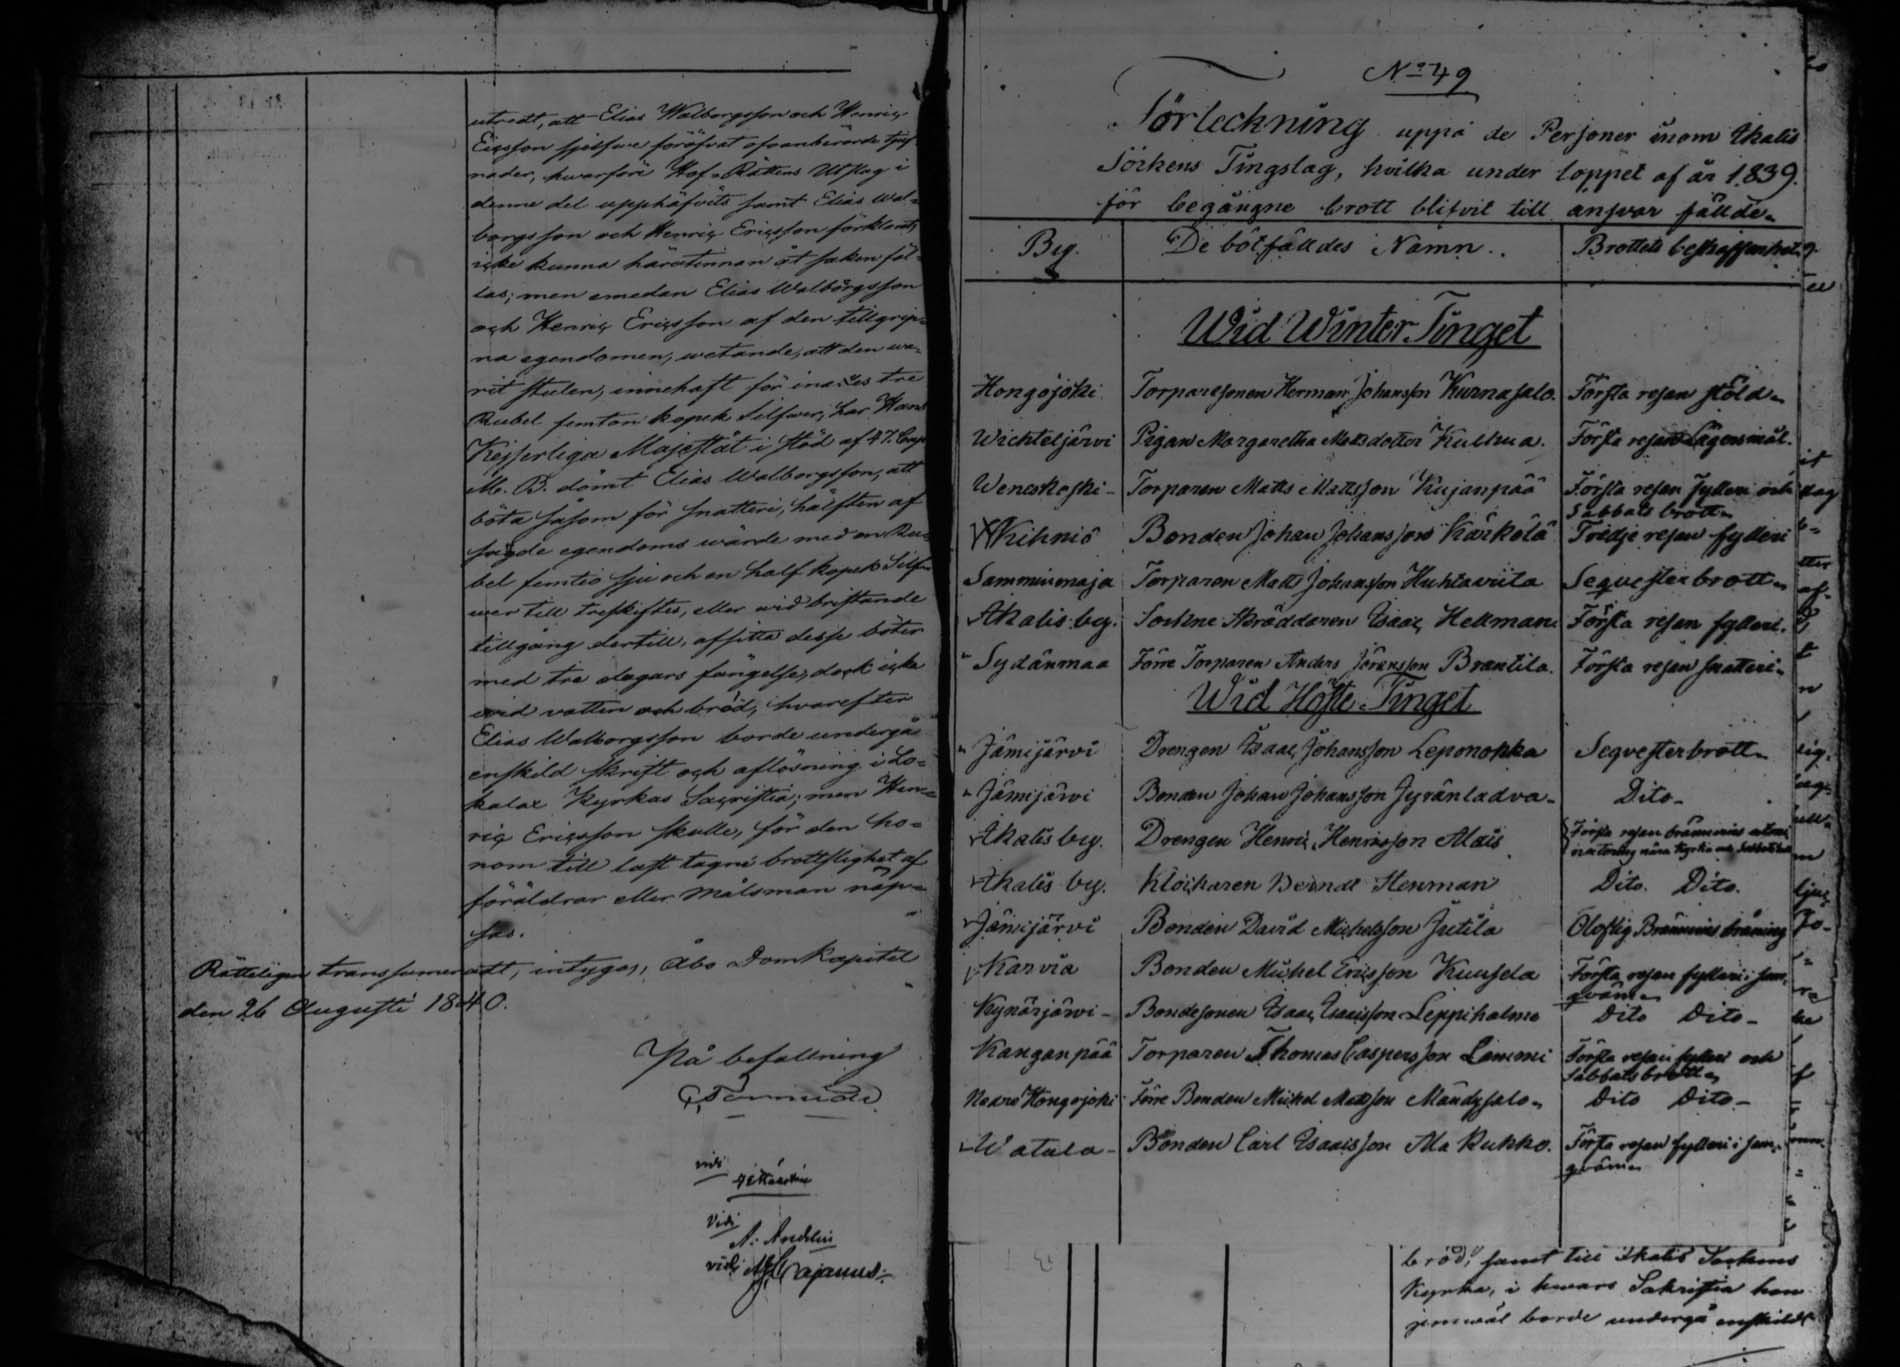 utredt, att Elias Walborgsson och Henric
Ericsson sjelfve föröfvat ofvanberörde tjuf
nader, hvarföre Hof-Rättens Utslag i
denne del upphäfvits samt Elias Wal-
borgsson och Henric Ericsson förklarats
icke kunna härutinnan åt saken fäl-
las; men emedan Elias Walborgsson
och Henric Ericsson af den tillgrip-
na egendomen, wetande, att den wa-
rit stulen, innehaft för inalles tre
Rubel femton kopek Silfwer; har Hans
Kejserliga Majestät i stöd af 47. Cap.
M. B. dömt Elias Walborgsson, att
böta såsom för snatteri, hälften af
sagde egendoms wärde med en Ru-
bel femtio sju och en half kopek Silf-
wer till treskiftes, eller wid bristande
tillgång dertill, afsitta desse böter
med tre dagars fängelse, dock icke
wid vatten och bröd; hvarefter
Elias Walborgsson borde undergå
enskild skrift och aflösning i Lo-
kalax Kyrkas Sacristia; men Hen-
ric Ericsson skulle, för den ho-
nom till last tagne brottslighet af
föräldrar eller målsman näp-
sas.
Rätteligen transsumeradt, intygas, Åbo Domkapitel
den 26 Augusti 1840.
På befallning
vidi
Vidi
A. Andelin
vidi Cajanus
No 49
Förteckning uppå de Personer inom Ikalis
Sockens Tingslag, hvilka under loppet af år 1839.
för begångne brott blifvit till ansvar fällde.
By. De bötfälldes Namn. Brottets beskaffenhet.
Wid Winter Tinget
Hongojoki Torparesonen Herman Johansson Kurnasalo. Första resan stöld.
Wichteljärvi Pigan Margaretha Mattsdotter Kullua. Första resan Lägersmål.
Weneskoski Torparen Matts Mattsson Kujanpää Första resan fylleri och
Sabbats brott.
Kihniö Bonden Johan Johansson Kärkölä Tredje resan fylleri
Samminmaja Torparen Matts Johansson Huhtaviita Seqvesterbrott.
Ikalis by. Sockne Skräddaren Isaac Hellman Första resan fylleri.
Sydänmaa Förre Torparen Anders Jöransson Brantila. Första resan snatteri.
Wid Höste Tinget
Jämijärvi Drengen Isaac Johansson Leponokka Seqvesterbrott.
Jämijärvi Bonden Johan Johansson Jyränladva Dito
Ikalis by. Drengen Henric Henricsson Alais Första resan brännvins
nära Kyrka och
Ikalis by. Klockaren Berndt Henman Dito. Dito.
Jämijärvi Bonden David Michelsson Jutila Oloflig Brännvins bränning
Karvia Bonden Michel Ericsson Kuusela Första resan fylleri i sam-
qväm.
Kynärjärvi Bondesonen Isaac Isaacsson Leppihalme Dito Dito
Kanganpää Torparen Thomas Caspersson Lammi Första resan fylleri och
Sabbatsbrott.
Nedre Hongojoki Förre Bonden Michel Mattsson Mändysalo. Dito Dito
Watula Bonden Carl Isaacsson Ala Kukko. Första resan fylleri i sam-
qväm.
bröd, samt till Ikalis Sockens
Kyrka, i hwars Sakristia han
jemwäl borde undergå enskild